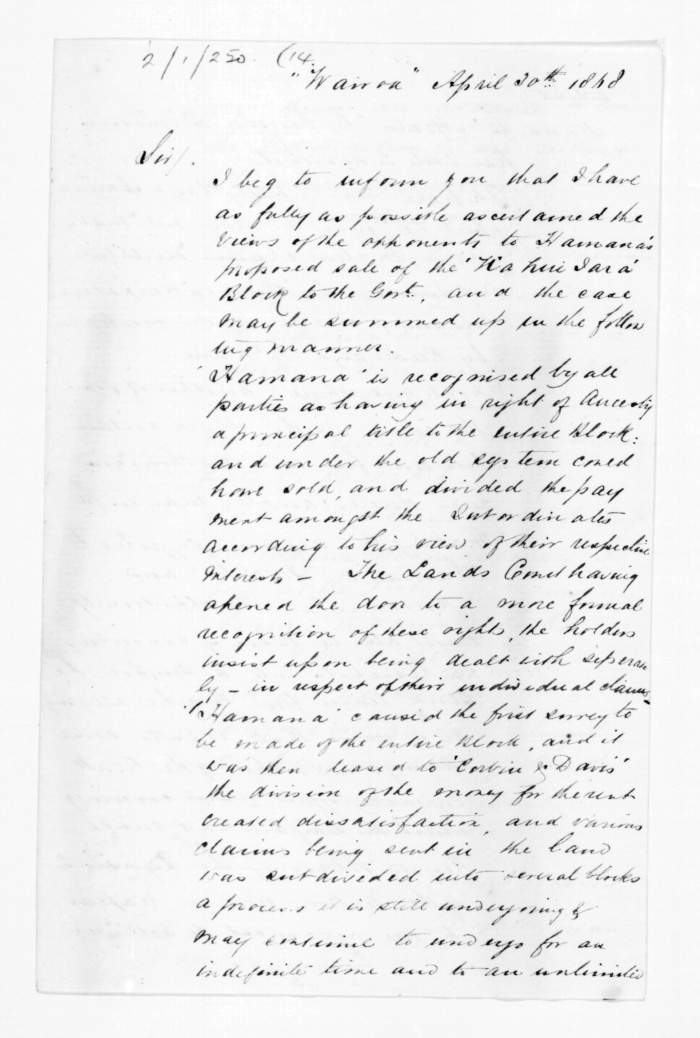 2/1/250. (14.
"Wairoa" April 20th 1868
Sir/.
I beg to inform you that I have
as fully as possible ascertained the
views of the opponents to Hamana's
proposed sale of the 'Kahui Tara'
Block to the Govt., and the case
may be summed up in the follow
ing manner.
'Hamana' is recognised by all
parties as having in right of Ancesty
a principal title to the entire Block:
and under the old system could
have sold, and divided the pay
ment amongst the Subordinates
according to his view of their respective
Interests – The Lands Court having
opened the door to a more formal
recognition of these rights, the holders
insist upon being dealt with seperate
ly – in respect of their individual claims.
'Hamana' caused the first survey to
be made of the entire Block, and it
was then leased to 'Corbin & Davis'
the division of the money for the rent
created dissatisfaction, and various
claims being sent in the Land
was subdivided into several blocks
a process it is still undergoing &
may continue to undergo for an
indefinite time and to an unlimited